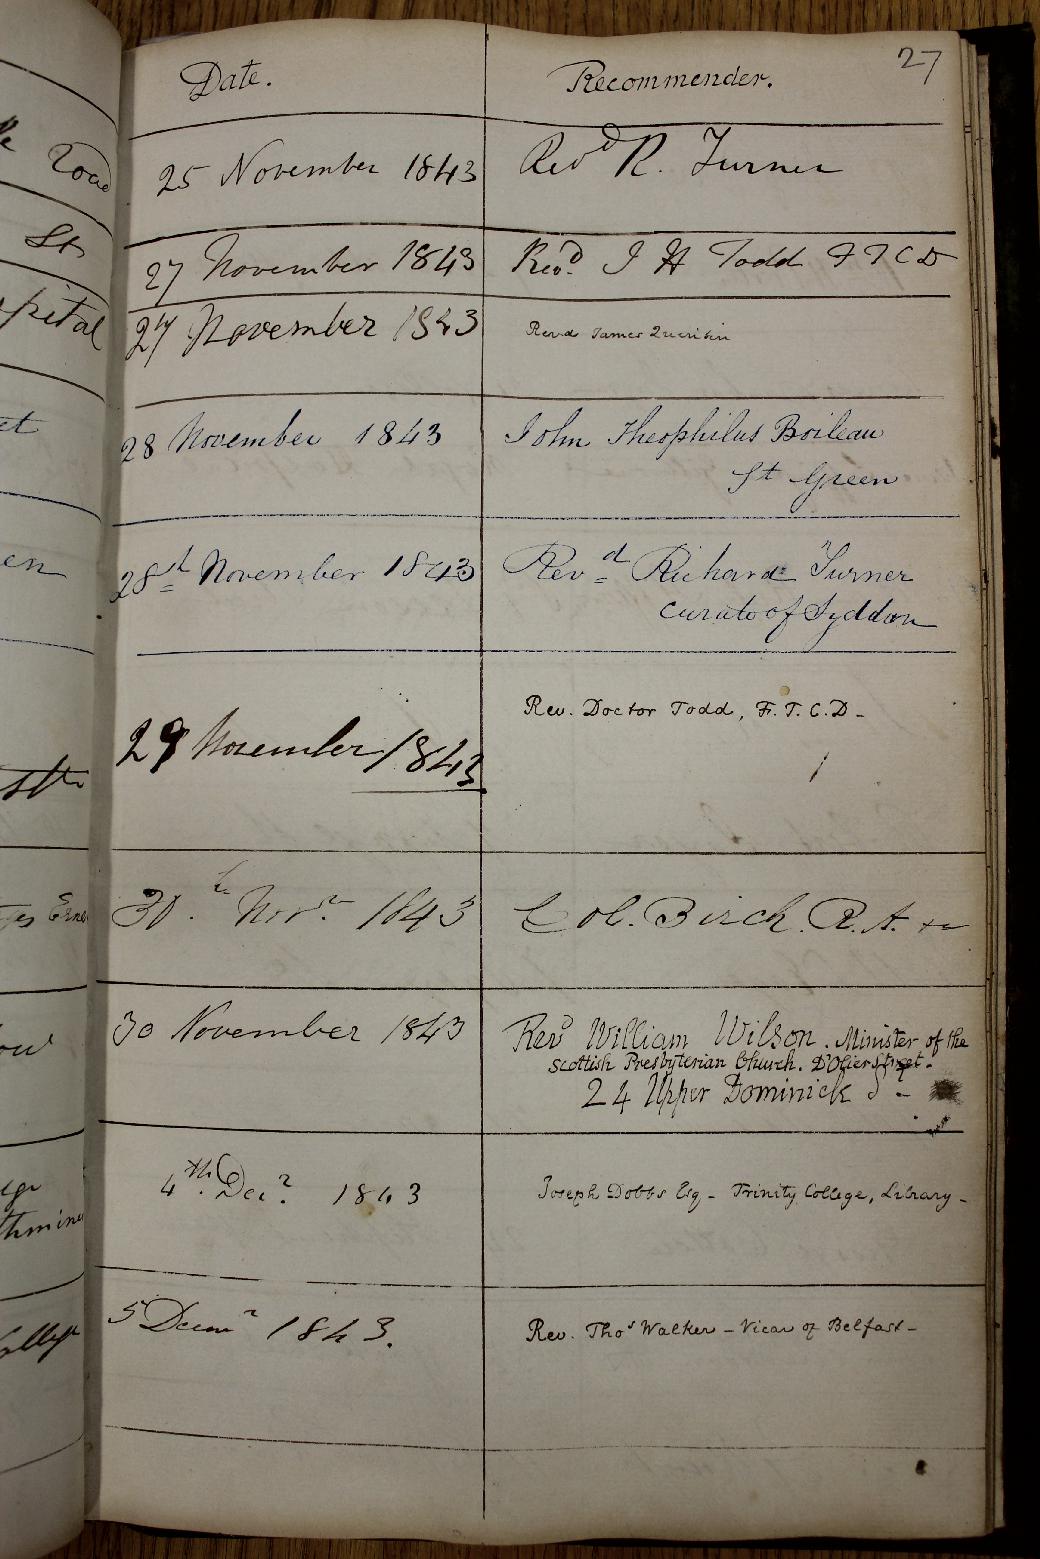 27
Date. Recommender.
25 November 1843 Revd R. Turner
27 November 1843 Revd. J H Todd F T C D
27 November 1843 Revd James
28 November 1843 John Theophilus Boileau
St Green
28th November 1843 Revd Richard Turner
curate of Syddan
29 November 1843 Rev. Doctor Todd, F. T. C. D-
30th Novr 1843 Col. Birch. R. A.
30 November 1843 Revd William Wilson. Minister of the
Scottish Presbyterian Church. D'Olier Street.
24 Upper Dominick St -
4th. Decr. 1843 Joseph Dobbs Esq - Trinity College, Library -
5 Decemr 1843. Rev. Thos Walker - Vicar of Belfast -
Road
St
spital
et
en